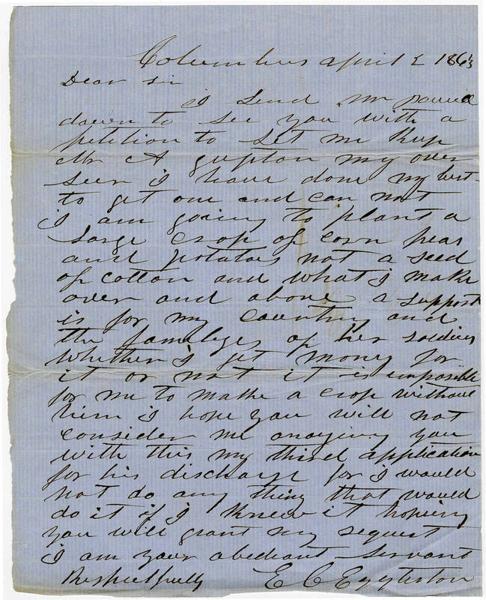 Columbus april 2 1863
Dear Sir
I Send Mr
down to See you with a
petition to Let me Keep
Mr A Gupton my over
seer I have done my best
to get one and can not
I am going to plant a
Large crop of corn peas
and potatoes not a seed
of cotton and what I make
over and above a support
is for my country and
the familys of her soldiers
Whether I get money for
it or not it is impossible
for me to make a crop without
him I hope you will not
consider me anoying you
with this my third application
for his discharge for I would
not do any thing that would
do it if I knew it hoping
you will grant my request
I am your obediant Servant
Respectfully E C Eggleston